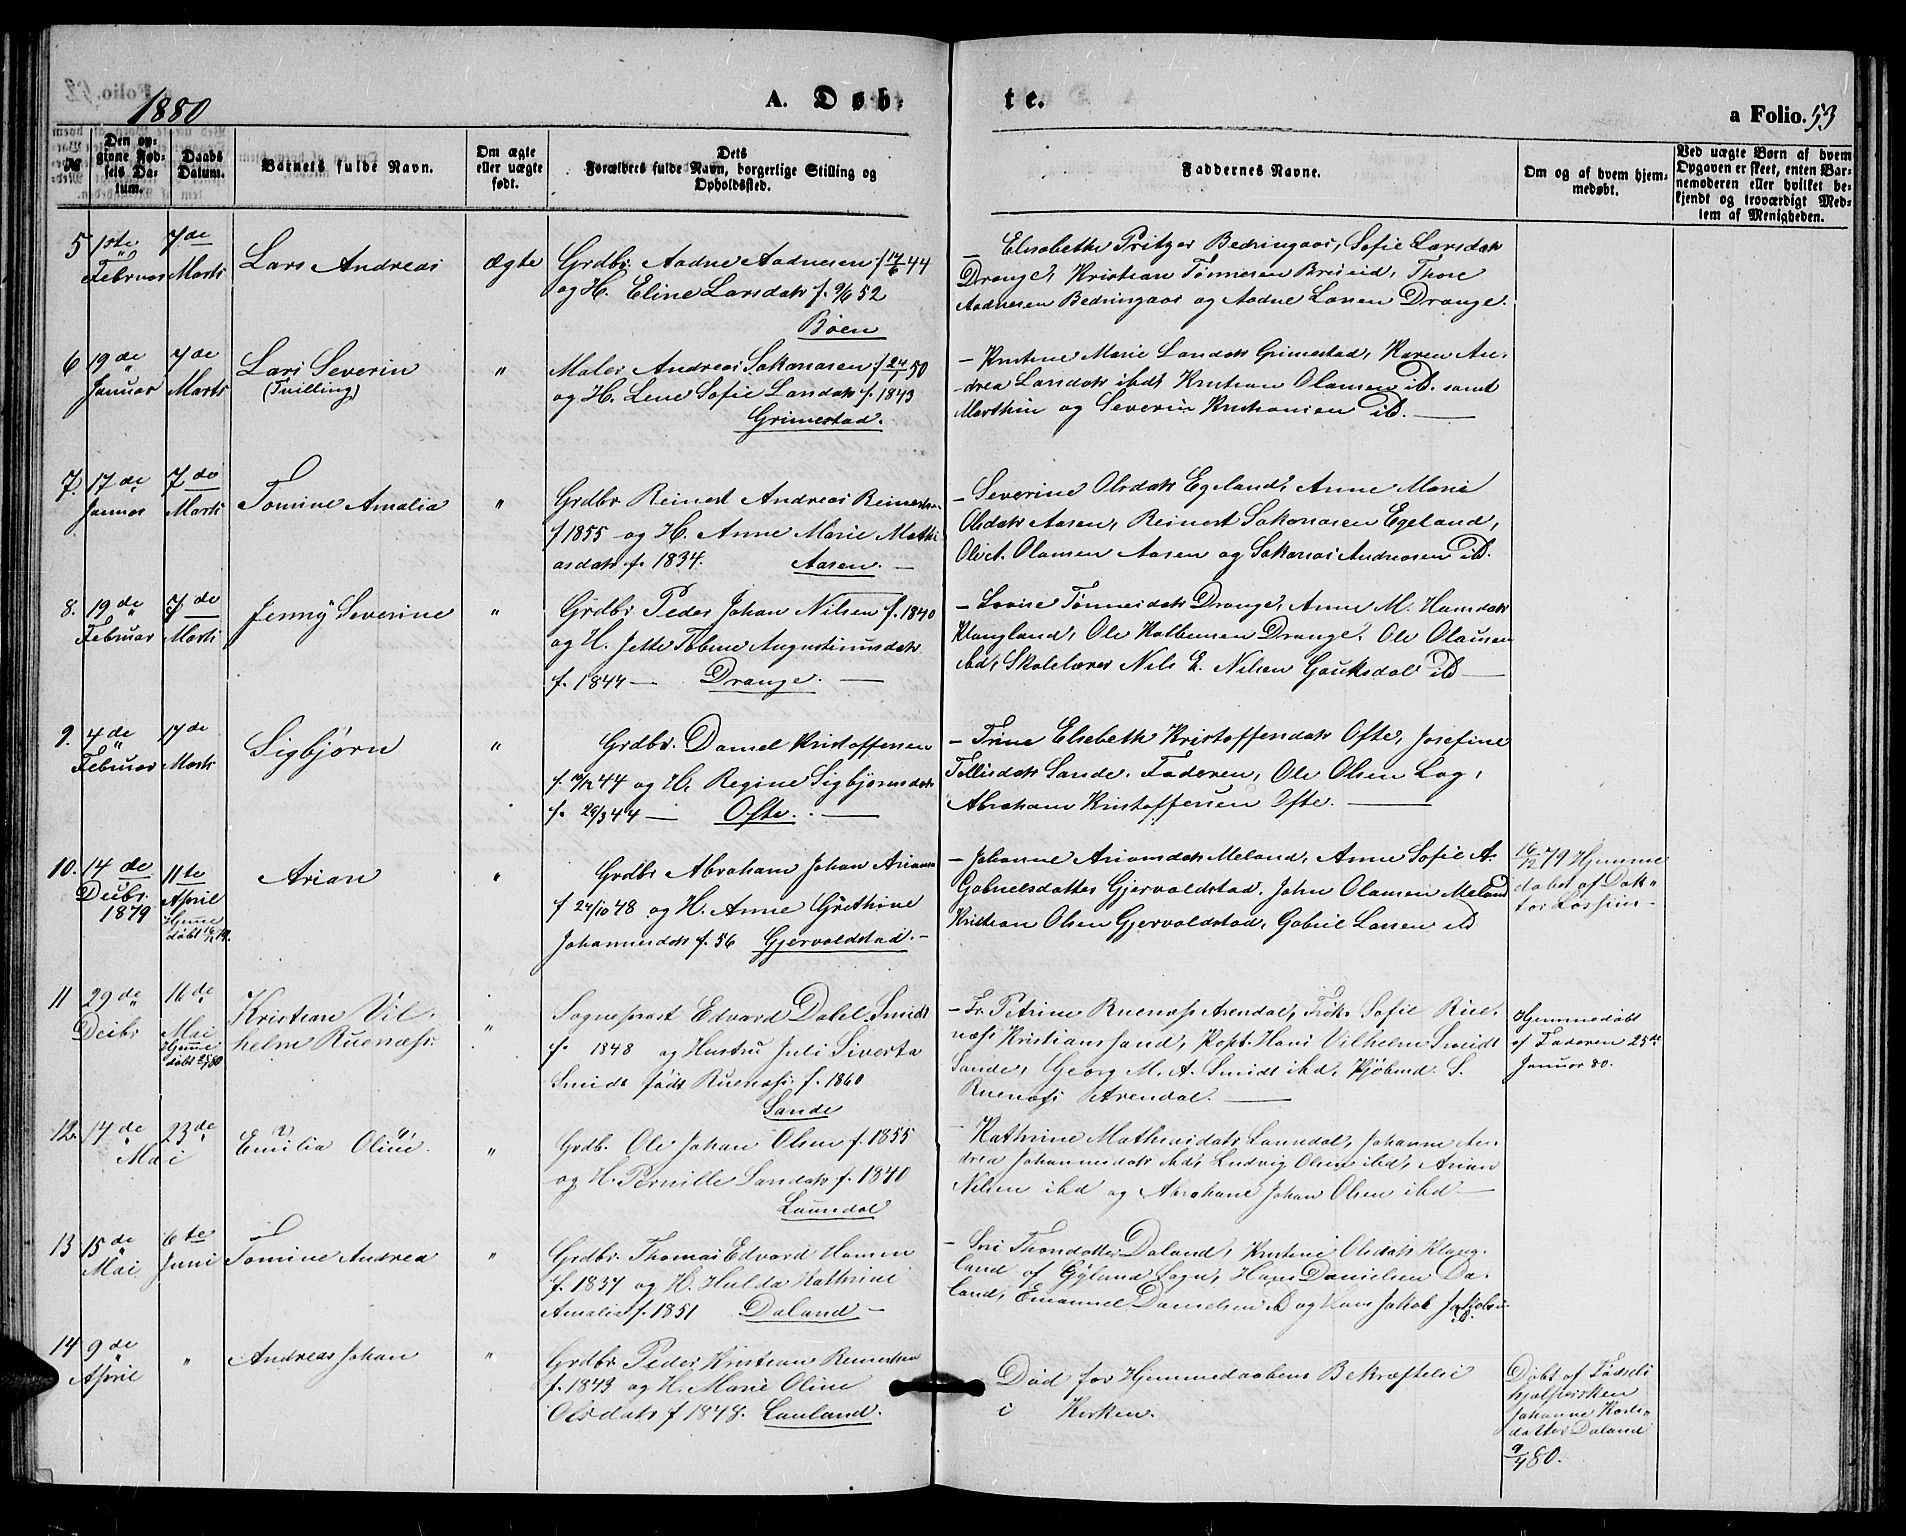 1880
A. Døb-
te.
a Folio. 53
No
Den op-
givne Fød-
sels Da-
tum.
Daabs
Datum.
Barnets fulde Navn.
Om ægte
eller uægte
født.
Dets
Forældres fulde Navn, borgerlige Stilling og
Opholdssted.
Faddernes Navne.
Om og af hvem hjem-
medøbt.
Ved uægte Børn af hvem
Opgaven er skeet, enten Bar-
nemoderen eller hvilket be-
kjendt og troværdigt Med-
lem af Menigheden.
5
1ste
Februar
7de
Marts
Lars Andreas
Ægte
Grdbr. Aadne Aadnesen f. 17/6 44
og H. Eline Larsdatr f. 9/6 52
Böen
Elisabeth Pritzer Bedringaas, Sofie Larsdatr
Drange, Kristian Tønnesen Breivid, Thore
Aadnesen Bedringaas og Aadne Larsen Drange.
6
19de
Januar
7de
Marts
Lars Severin
(Tvilling)
"
Maler Andreas Sakariasen f. 24/1 50
og H. Lene Sofie Larsdatr f. 1843
Grimestad.
Marie Larsdatr Grimestad, Karen An-
drea Larsdatr ibd, Kristian Olausen iD. samt
Marthin og Severin Kristiansen iD.
7.
17de
Januar
7de
Marts
Tomine Amalia
"
Grdbr Reinert Andreas Reinertsen
f 1855 og H. Anne Marie Mathi
asdatr f. 1834. Aasen.
- Severine Olsdatr Egeland, Anne Marie
Olsdatr Aasen, Reinert Sakariasen Egeland,
Olaus Aasen og Sakarias Andreasen iD.
8.
19de
Februar
7de
Marts
Jenny Severine
"
Grdbr Peder Johan Nilsen f. 1840
og H. Jette Tobine Augustinusdatr
f. 1844 Drange.
- Lovise Tønnesdatr Drange, Anne M. Hansdatr
Klungland, Ole Kolbensen Drange. Ole Olausen
ibd, Skolelærer Nils E. Nilsen Gauksdal iD
9.
4de
Februar
7de
Marts
Sigbjørn
"
Grdbr. Daniel Kristoffersen
f. 10/12 44 og H. Regine Sigbjørnsdatr
f. 29/3 44 Ofte.
- Trine Elsebeth Kristoffersdatr Ofte, Josefine
Tollisdatr Sande. Faderen, Ole Olsen Log,
Abraham Kristoffersen Ofte.
10.
14de
Decbr.
1879
11te
April
Hjemme
døbt 16/12 79.
Arian
"
Grdbr Abraham Johan Ariansen
f 24/10 48 og H. Anne Grethine
Johannesdatr f. 56 Gjervoldstad.
- Johanne Ariansdatr Meland, Anne Sofie A.
Gabrielsdatter Gjervoldstad, John Olausen Meland
Kristian Olsen Gjervoldstad, Gabriel Larsen iD
16/12 79 Hjemme
døbt af Dok-
tor
11
29de
Decbr
16de
Mai
Hjemme
døbt 25/1 80
Kristian Vil-
helm Ruenæs.
"
Sogneprest Edvard Dahl Smidt
f. 1848 og Hustru Juli Siverta
Smidt født Ruenæs. f. 1860
Sande
- Fr Petrine Ruenæs Arendal, Frøk. Sofie Rue-
næs Kristiansand, Kapt. Hans Vilhelm Smidt
Sande, Georg M. A. Smidt ibd, Kjøbmd. S.
Ruenæs Arendal.
Hjemmedøbt
af Faderen 25de
Januar 80.
12.
14de
Mai
23de
Emilia Oline
"
Grdb. Ole Johan Olsen f. 1855
og H. Pernille Larsdatr f. 1840
Laundal
- Kathrine Mathiasdatr Laundal, Johanne An-
drea Johannesdatr ibd, Ludvig Olsen ibd, Arian
Nilsen ibd og Abraham Johan Olsen ibd
13
15de
Mai
6te
Juni
Tomine Andrea
"
Grdbr. Thomas Edvard Hansen
f. 1837 og H. Hulda Kathrine
Amalie f. 1851 Daland
- Siri Daland, Kristine Olsdatr Klung-
land af Gyland Sogn, Hans Danielsen Da-
land, Emanuel Danielsen iD og Hans Jakob Jakobsen
iD.
14
9de
April
"
Andreas Johan
"
Grdbr. Peder Kristian Reinertsen
f. 1843 og H. Marie Oline
Olsdatr f 1848. Lauland.
Død før Hjemmedaabens Bekræftelse
i Kirken.
Døbt af Fødsels
hjælpersken
Johanne Karls-
datter Daland
9/4 80.